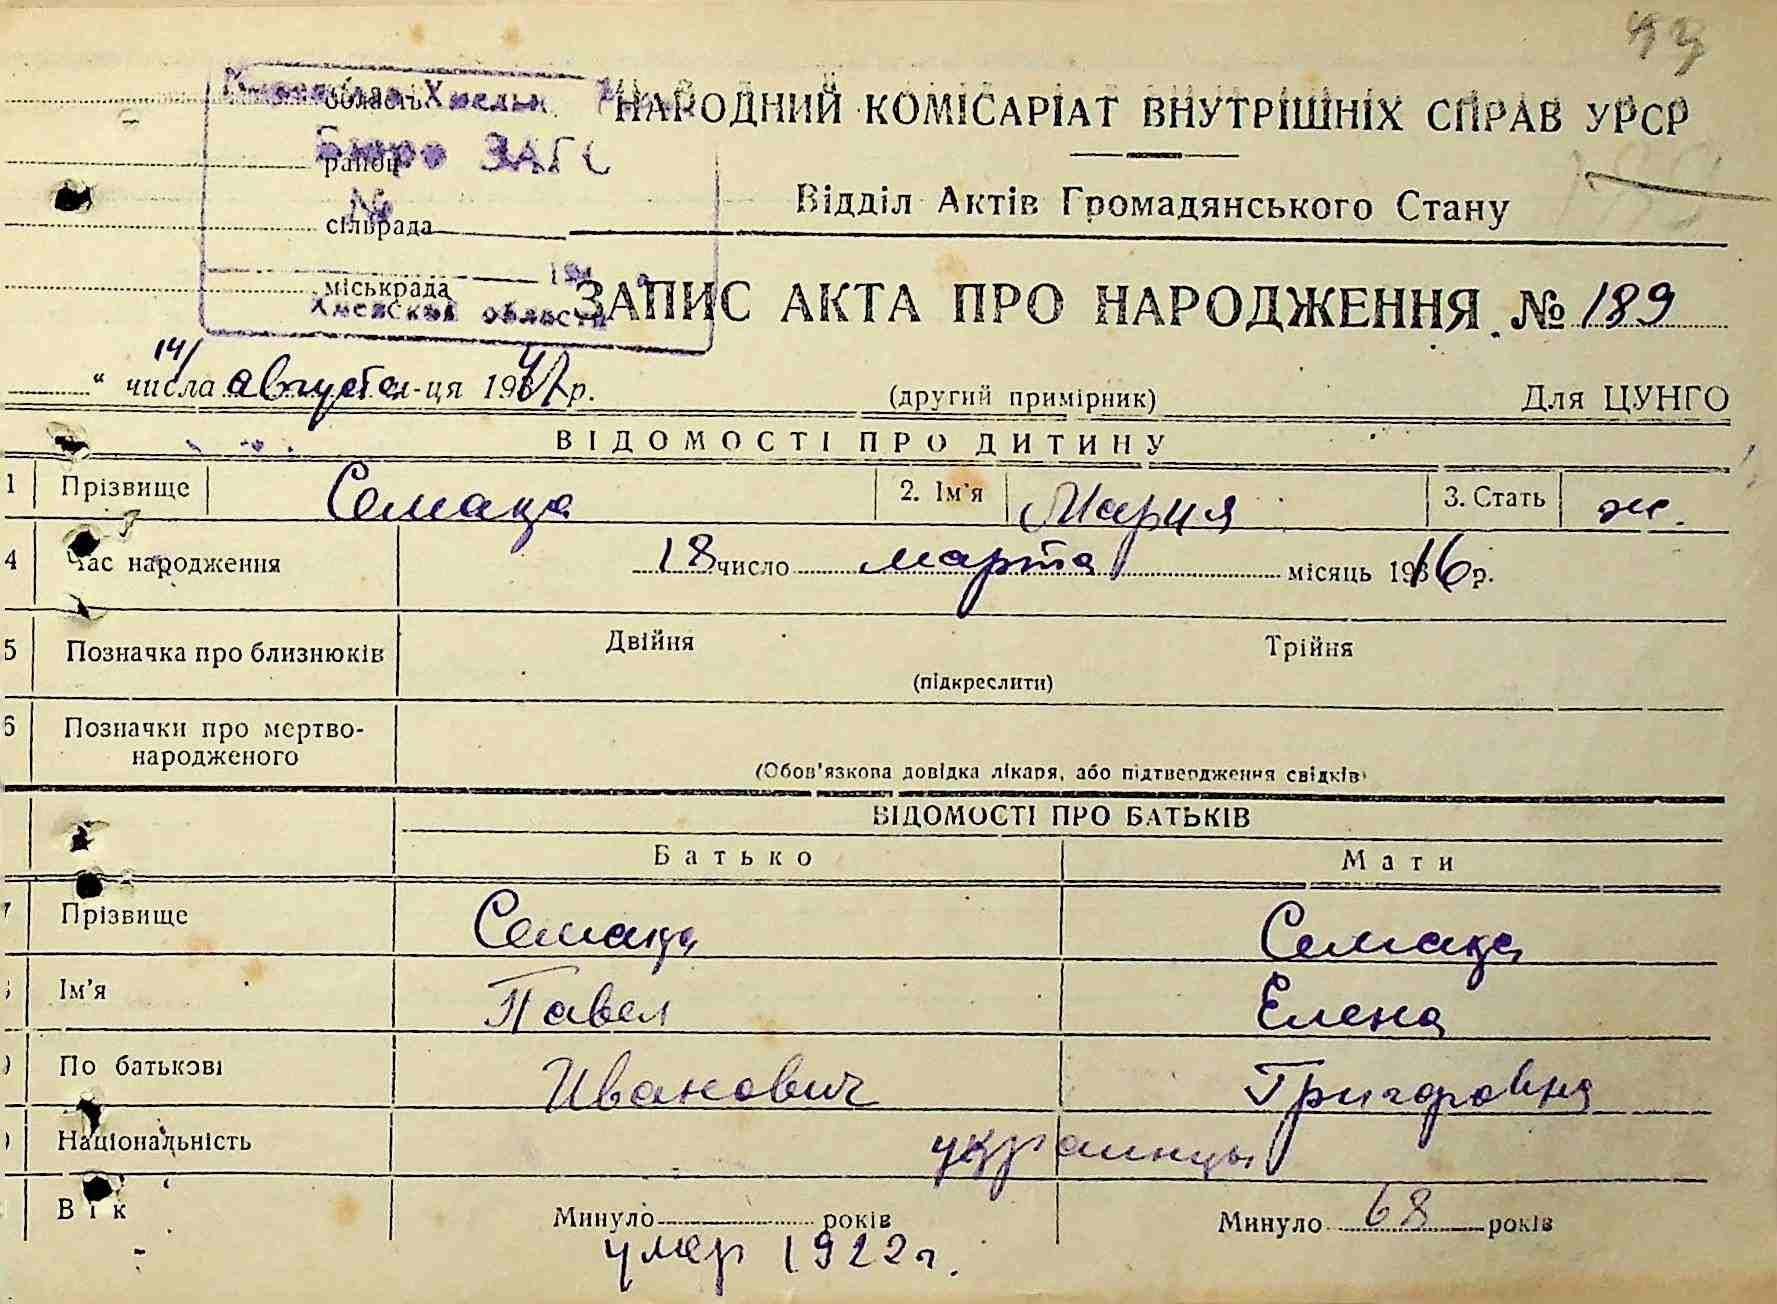 НАРОДНИЙ КОМІСАРІАТ ВНУТРІШНІХ СПРАВ УРСР
область
Бюро ЗАГС
район
Відділ Актів Громадянського Стану
№
сільрада
міськрада
области
ЗАПИС АКТА ПРО НАРОДЖЕННЯ № 189
14 " числа августа м-ця 1947 р. (другий примірник) Для ЦУНГО
ВІДОМОСТІ ПРО ДИТИНУ
1 Прізвище Семаца 2. Ім'я Мария 3. Стать ж.
4 Час народження 18 число марта місяць 1916 р.
5 Позначка про близнюків Двійня Трійня
(підкреслити)
6 Позначки про мертво-
народженого
(Обов'язкова довідка лікаря, або підтвердження свідків)
ВІДОМОСТІ ПРО БАТЬКІВ
Батько Мати
7 Прізвище Семаца Семаца
Ім'я Павел Елена
По батькові Иванович Григоровна
Національність украинцы
Вік Минуло років Минуло 68 років
умер 1922 г.